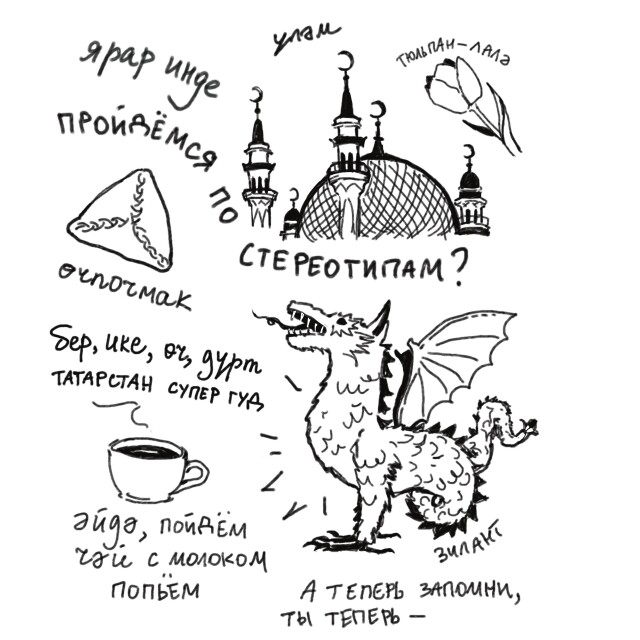 улэм
тюльпан-лалэ
ярар инде
пройдёмся
по
стереотипам?
өчпочмак
бер, ике, өч, дурт
Татарстан супер гуд,
әйдә, пойдём
чәй с молоком
попьём
зилант
А теперь запомни,
ты теперь —